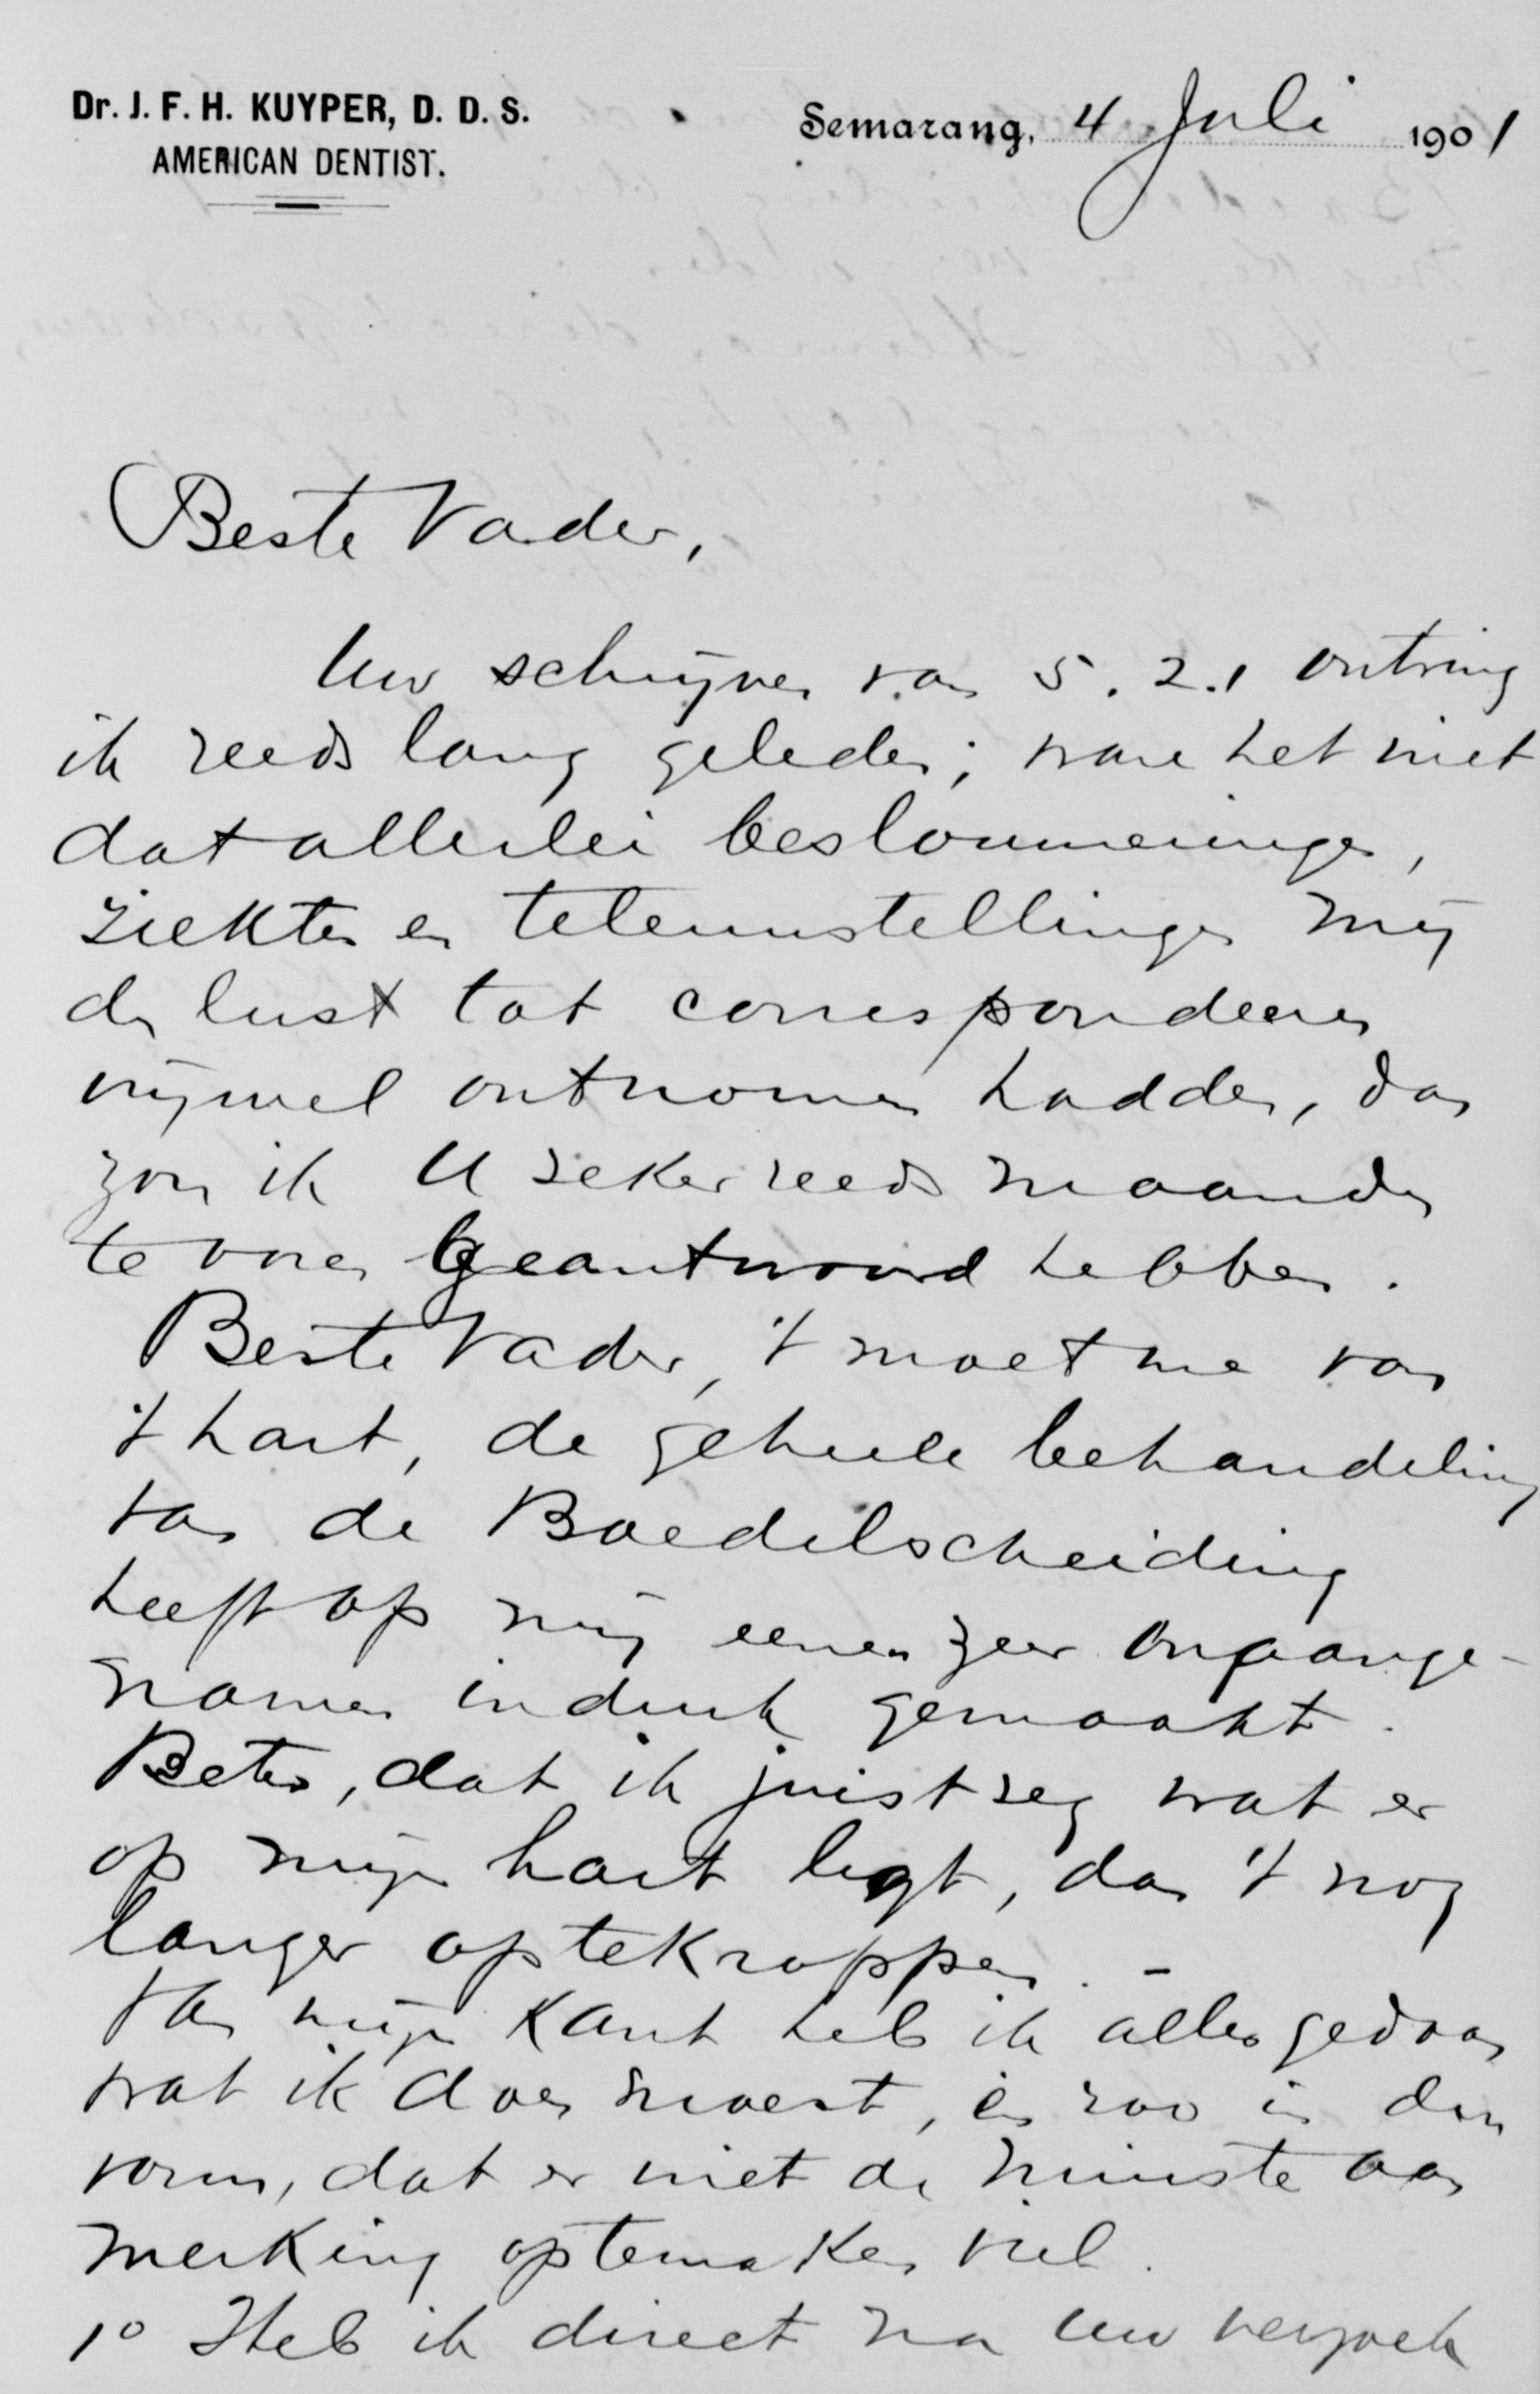 Dr. J. F. H. KUYPER, D. D. S.
AMERICAN DENTIST.
Semarang, 4 Juli 1901
Beste Vader,
Uw schrijven van 5.2.1 ontving
ik reeds lang geleden; ware het niet
dat allerlei beslommeringen,
ziekten en teleurstellingen mij
den lust tot correspondeeren
vrijwel ontnomen hadden, dan
zou ik U zeker reeds maanden
te voren geantwoord hebben.
Beste Vader, 't moet me van
't hart, de geheele behandeling
van de Boedelscheiding
heeft op mij eenen zeer onaange-
namen indruk gemaakt.
Beter, dat ik juist zeg wat er
op mijn hart ligt, dan 't nog
langer optekroppen. -
Van mijn kant heb ik alles gedaan
wat ik doen moest, en zoo in den
vorm, dat er niet de minste aan
merking optemaken viel.
1o Heb ik direct na uw verzoek